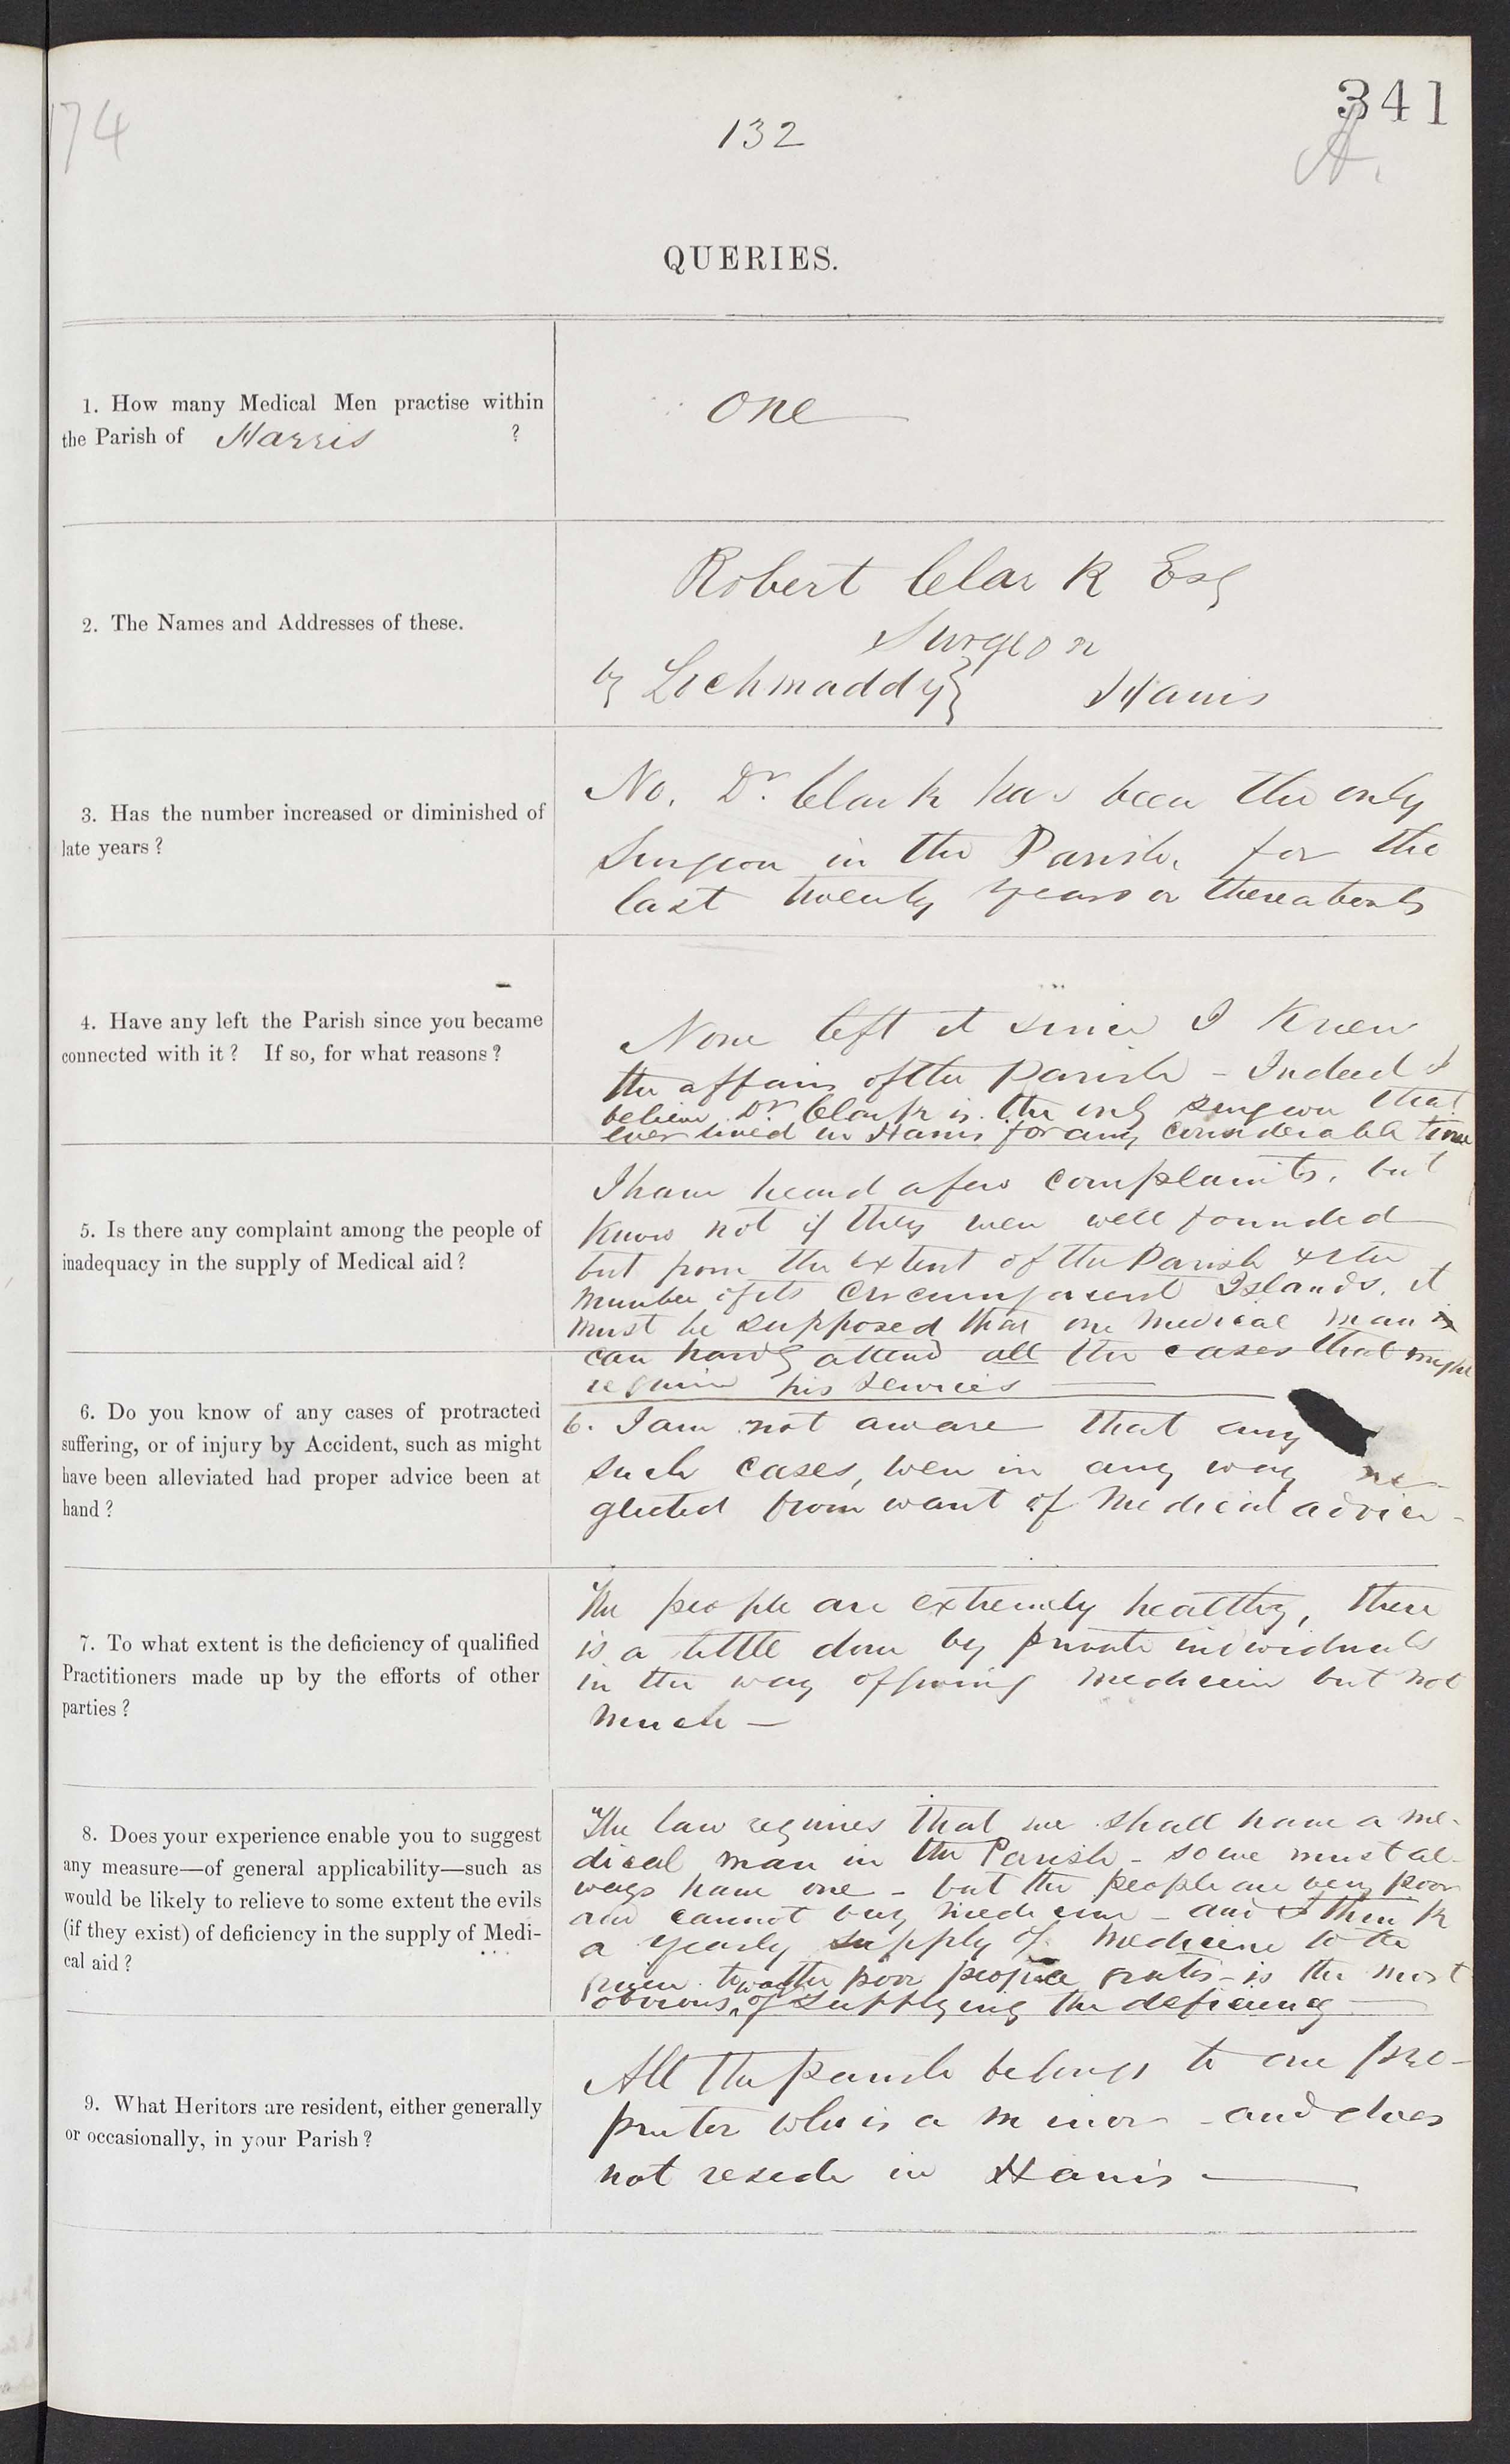 74
132
341
A.
QUERIES.
1. How many Medical Men practise within
the Parish of Harris ?
One
2. The Names and Addresses of these.
Robert Clark Esq
Surgeon
by Lochmaddy} Harris
3. Has the number increased or diminished of
late years ?
No. Dr. Clark has been the only
Surgeon in the Parish, for the
last twenty years or thereabouts
4. Have any left the Parish since you became
connected with it ? If so, for what reasons ?
None left it since I knew
the affairs of the Parish - Indeed I
believe Dr Clark is the only surgeon that
ever lived in Harris for any considerable time
5. Is there any complaint among the people of
inadequacy in the supply of Medical aid ?
I have heard a few complaints, but
know not if they were well founded
but from the extent of the Parish & the
number of its circumjacent Islands, it
must be supposed that one medical man
can hardly attend all the cases that might
require his services
6. Do you know of any cases of protracted
suffering, or of injury by Accident, such as might
have been alleviated had proper advice been at
hand ?
6. I am not aware that any
such cases, were in any way ne-
glected from want of Medical advice -
7. To what extent is the deficiency of qualified
Practitioners made up by the efforts of other
parties ?
The people are extremely healthy, there
is a little done by private individuals
in the way of giving medicine but not
much —
8. Does your experience enable you to suggest
any measure—of general applicability—such as
would be likely to relieve to some extent the evils
(if they exist) of deficiency in the supply of Medi-
cal aid ?
The law requires that we shall have a me-
dical man in the Parish - so we must al-
ways have one - but the people are very poor
and cannot buy medicine - and I think
a yearly supply of medicine to be
given to the poor people gratis - is the most
obvious way of supplying the deficiency
9. What Heritors are resident, either generally
or occasionally, in your Parish ?
All the parish belongs to one pro-
prietor who is a minor - and does
not reside in Harris —